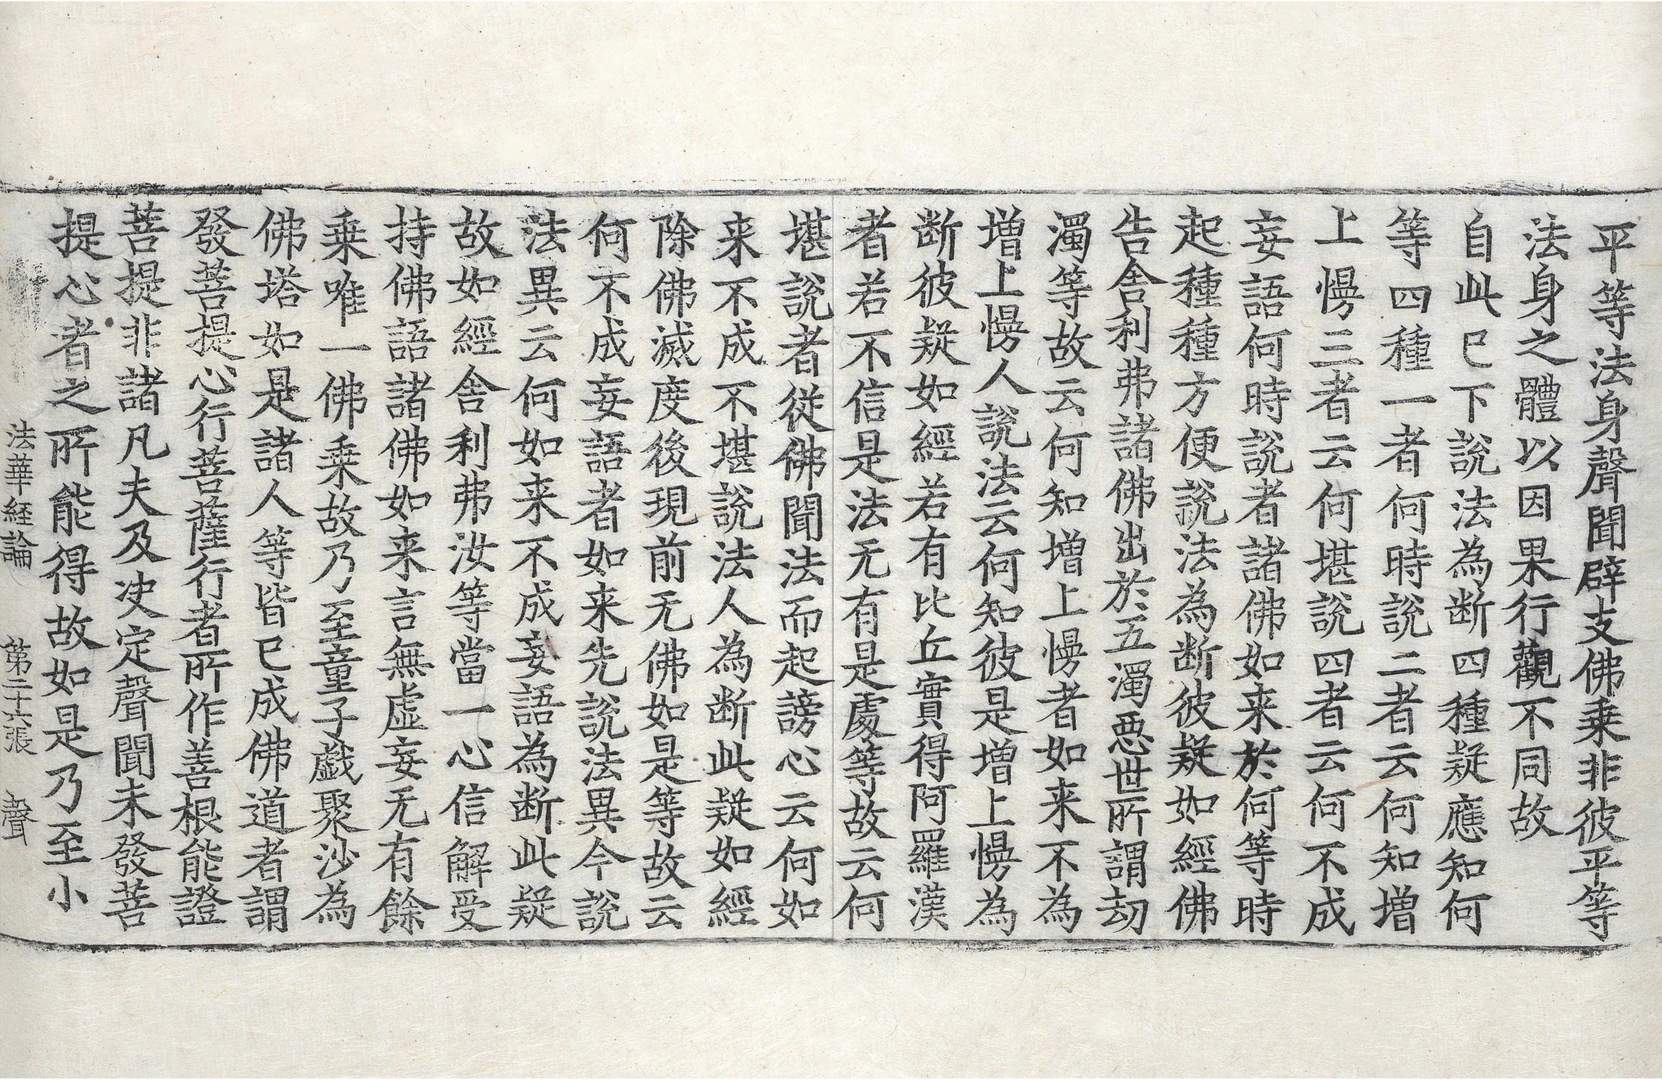 平等法身聲聞辟支佛乗非彼平等
法身之體以因果行觀不同故
自此已下説法為断四種疑應知何
等四種一者何時説二者云何知増
上慢三者云何堪説四者云何不成
妄語何時説者諸佛如来於何等時
起種種方便説法為断彼疑如經佛
告舎利弗諸佛出於五濁惡世所謂劫
濁等故云何知増上慢者如来不為
増上慢人説法云何知彼是増上慢為
断彼疑如經若有比丘實得阿羅漢
者若不信是法无有是處等故云何
堪説者從佛聞法而起謗心云何如
来不成不堪説法人為断此疑如經
除佛滅度後現前无佛如是等故云
何不成妄語者如来先説法異今説
法異云何如来不成妄語為断此疑
故如經舎利弗汝等當一心信解受
持佛語諸佛如来言無虚妄无有餘
乗唯一佛乗故乃至童子戯聚沙為
佛塔如是諸人等皆已成佛道者謂
發菩提心行菩薩行者所作善根能證
菩提非諸凡夫及决定聲聞未發菩
提心者之所能得故如是乃至小
法華経論 第二十六張 聲